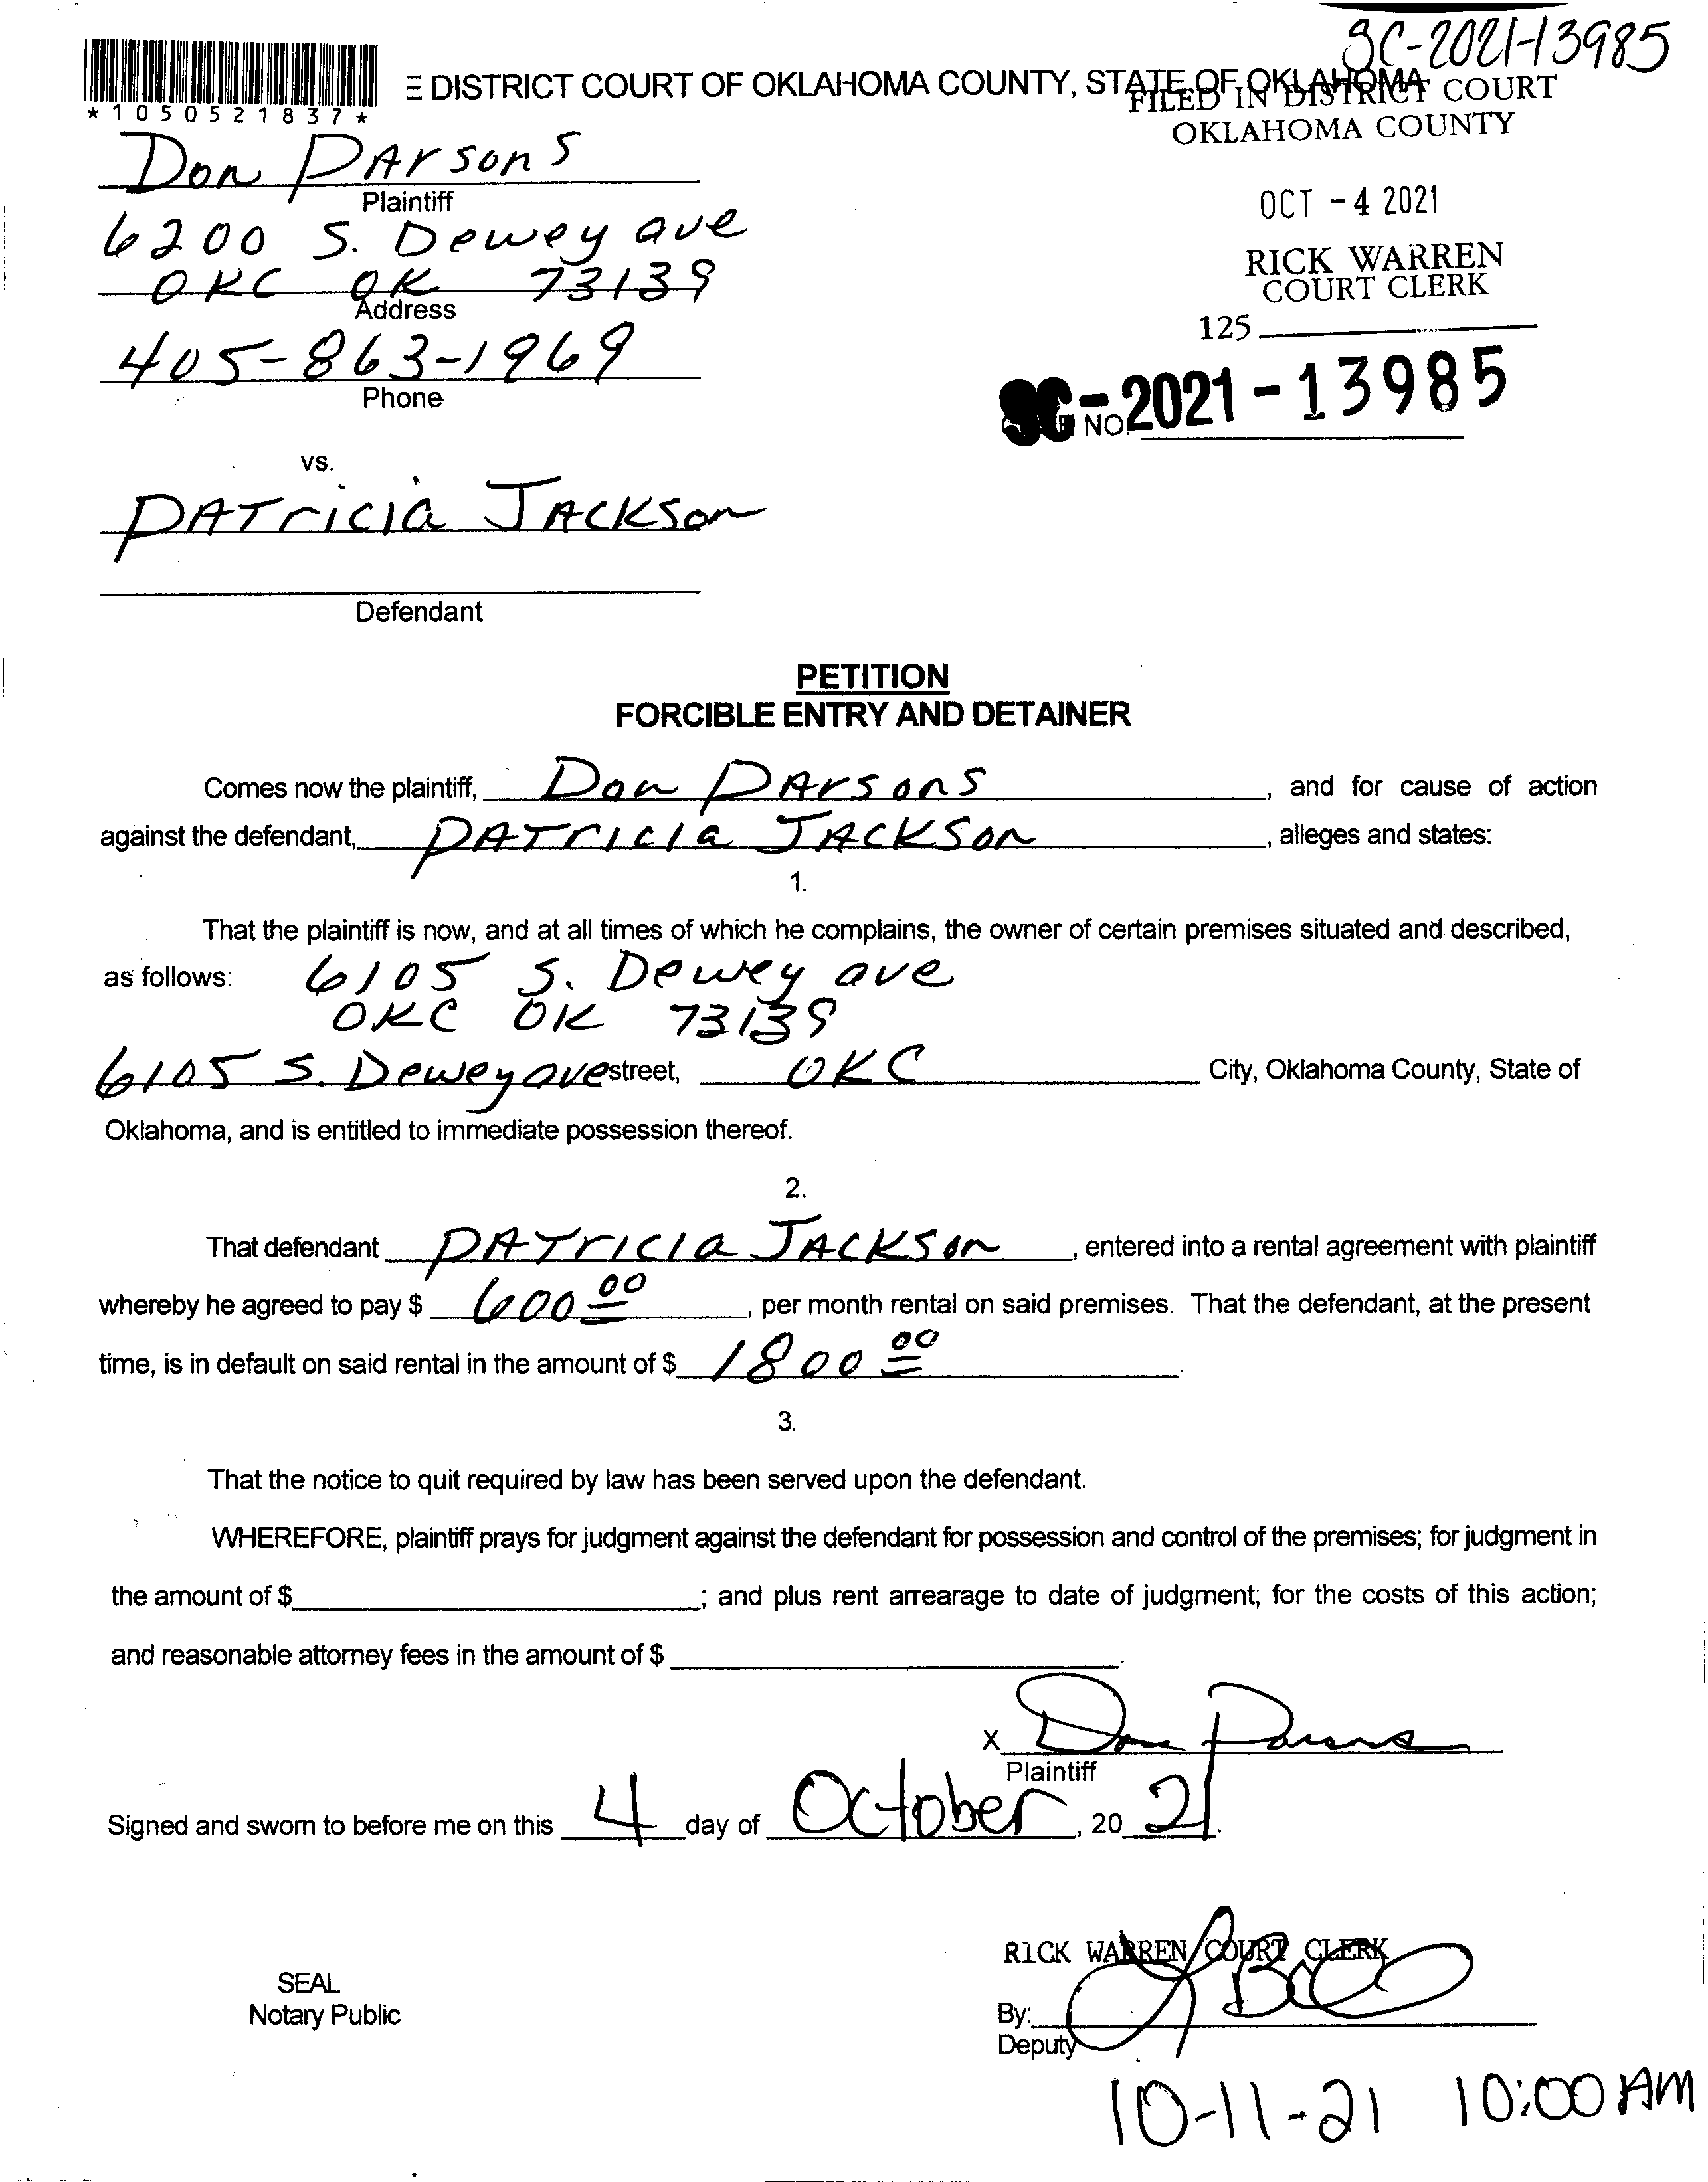 SC-2021-13985
E DISTRICT COURT OF OKLAHOMA COUNTY, STATE OF OKLAHOMA
FILED IN DISTRICT COURT
OKLAHOMA COUNTY
*1050521837*
Don Parsons
Plaintiff
OCT -4 2021
6200 S. Dewey ave
RICK WARREN
COURT CLERK
OKC OK 73139
Address
125
405-863-1969
Phone
SC-2021-13985
NO.
vs.
Patricia Jackson
Defendant
PETITION
FORCIBLE ENTRY AND DETAINER
Comes now the plaintiff, Don Parsons, and for cause of action
against the defendant, Patricia Jackson, alleges and states:
1.
That the plaintiff is now, and at all times of which he complains, the owner of certain premises situated and described,
as follows: 6105 S. Dewey ave
OKC OK 73139
6105 S. Dewey ave street, OKC City, Oklahoma County, State of
Oklahoma, and is entitled to immediate possession thereof.
2.
That defendant Patricia Jackson, entered into a rental agreement with plaintiff
whereby he agreed to pay $ 600 00, per month rental on said premises. That the defendant, at the present
time, is in default on said rental in the amount of $ 1800 00.
3.
That the notice to quit required by law has been served upon the defendant.
WHEREFORE, plaintiff prays for judgment against the defendant for possession and control of the premises; for judgment in
the amount of $ ; and plus rent arrearage to date of judgment; for the costs of this action;
and reasonable attorney fees in the amount of $ .
X Don Parsons
Plaintiff
Signed and sworn to before me on this 4 day of October, 20 21.
RICK WARREN COURT CLERK
SEAL
Notary Public
By:
Deputy
10-11-21 10:00 AM